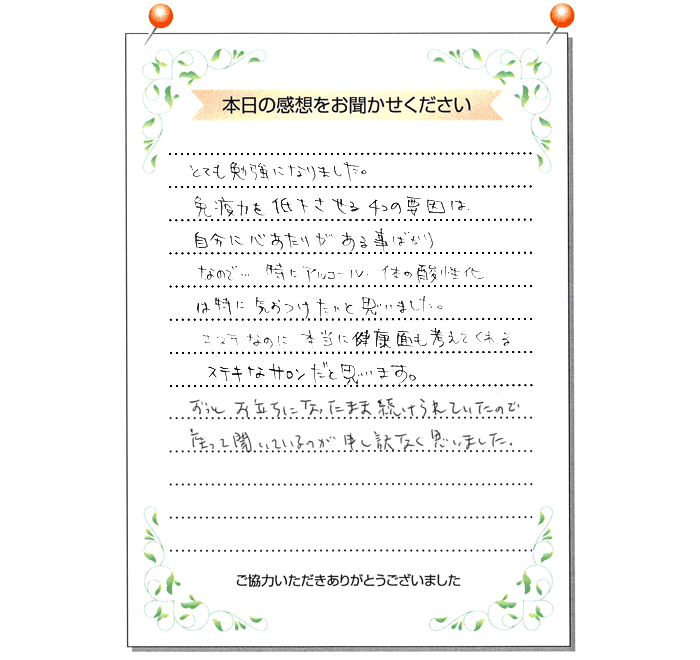 本日の感想をお聞かせください
とても勉強になりました。
免疫力を低下させる4つの要因は
自分に心あたりがある事ばかり
なので… 特にアルコール、体の酸性化
は特に気をつけたいと思いました。
エステなのに本当に健康面も考えてくれる
ステキなサロンだと思います。
ずっとお立ちになったまま続けられていたので
座って聞いているのが申し訳なく思いました。
ご協力いただきありがとうございました